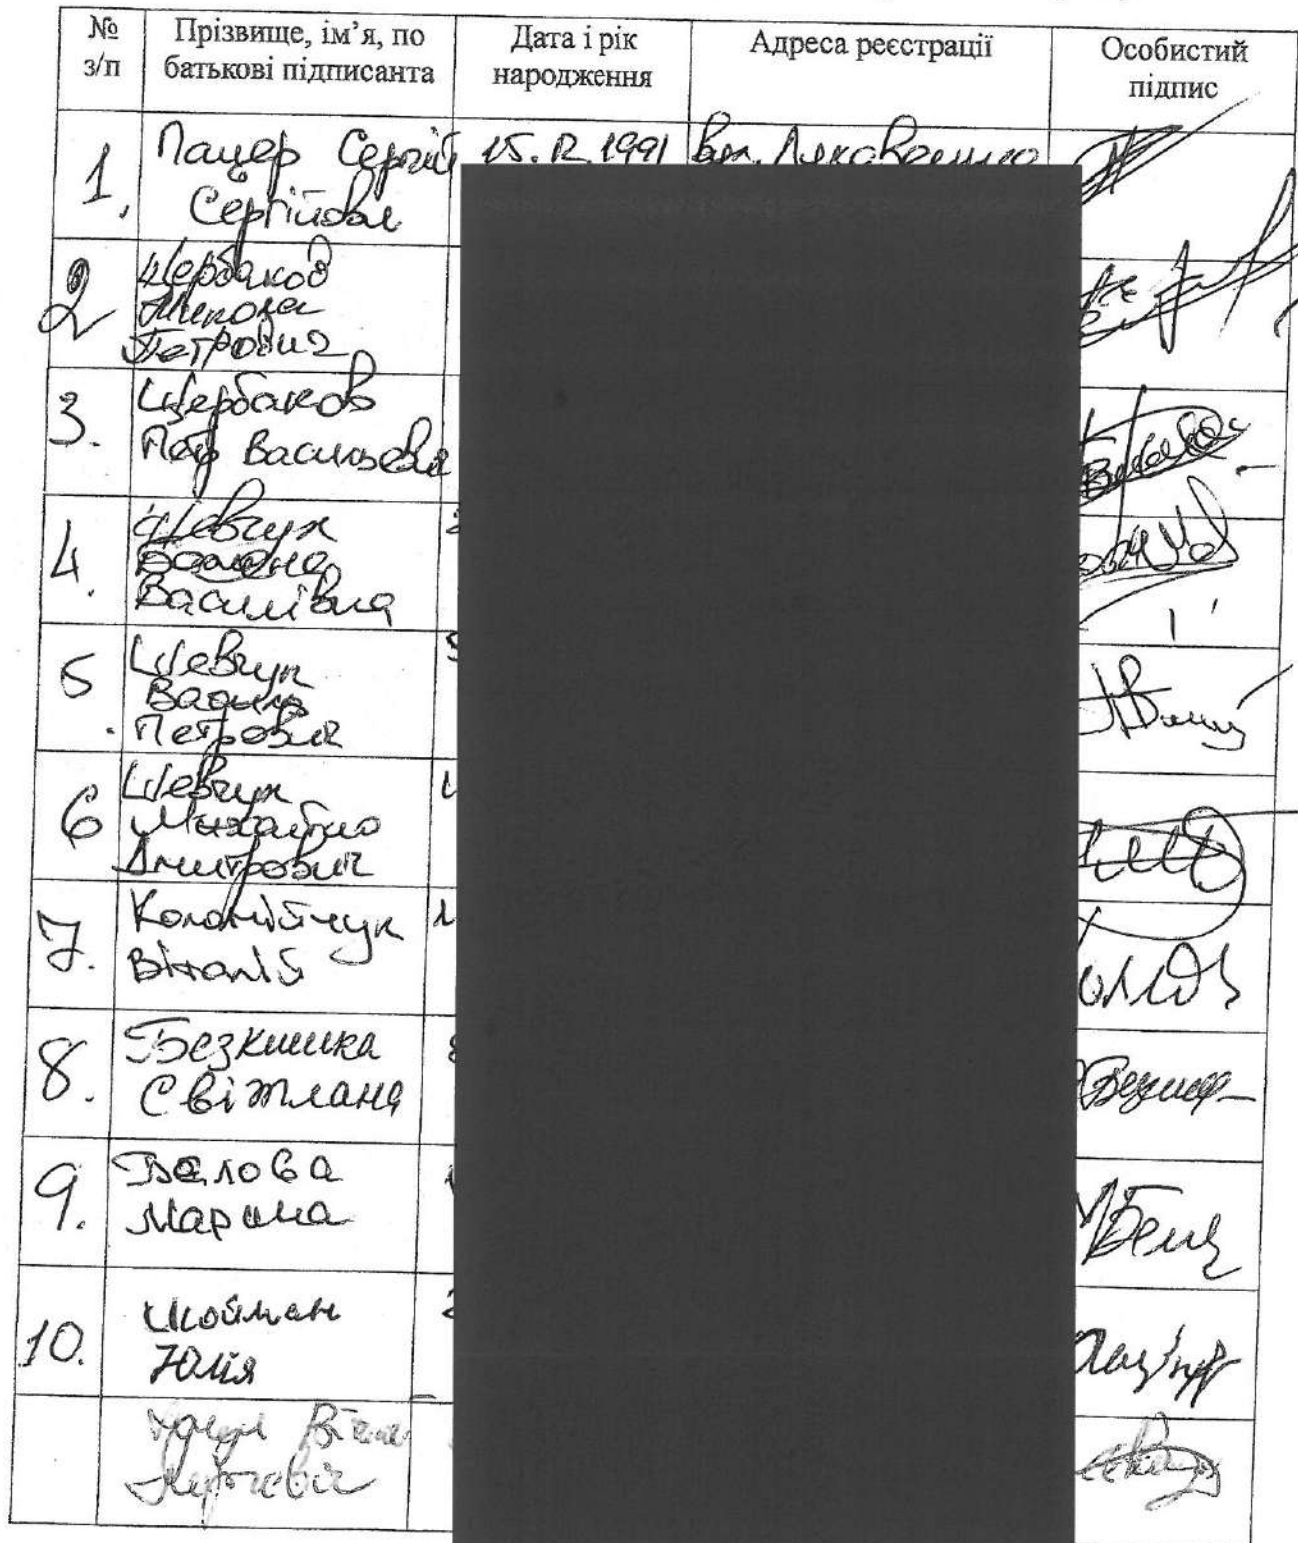 № з/п
Прізвище, ім’я, по батькові підписанта
Дата і рік народження
Адреса реєстрації
Особистий підпис
1.
Пацер Сергій
15.12.1991
вул.
2
Щербаков
Микола
Петрович
3.
Щербаков
Петр Васильевич
4.
Шевчук
Василівна
5.
Шевчук
Василь
Петрович
6
Шевчук
Михайло
Дмитрович
7.
Коломійчук
Віталій
8.
Безкишка
Світлана
9.
Бєлова
Марина
10.
Шойман
Юлія